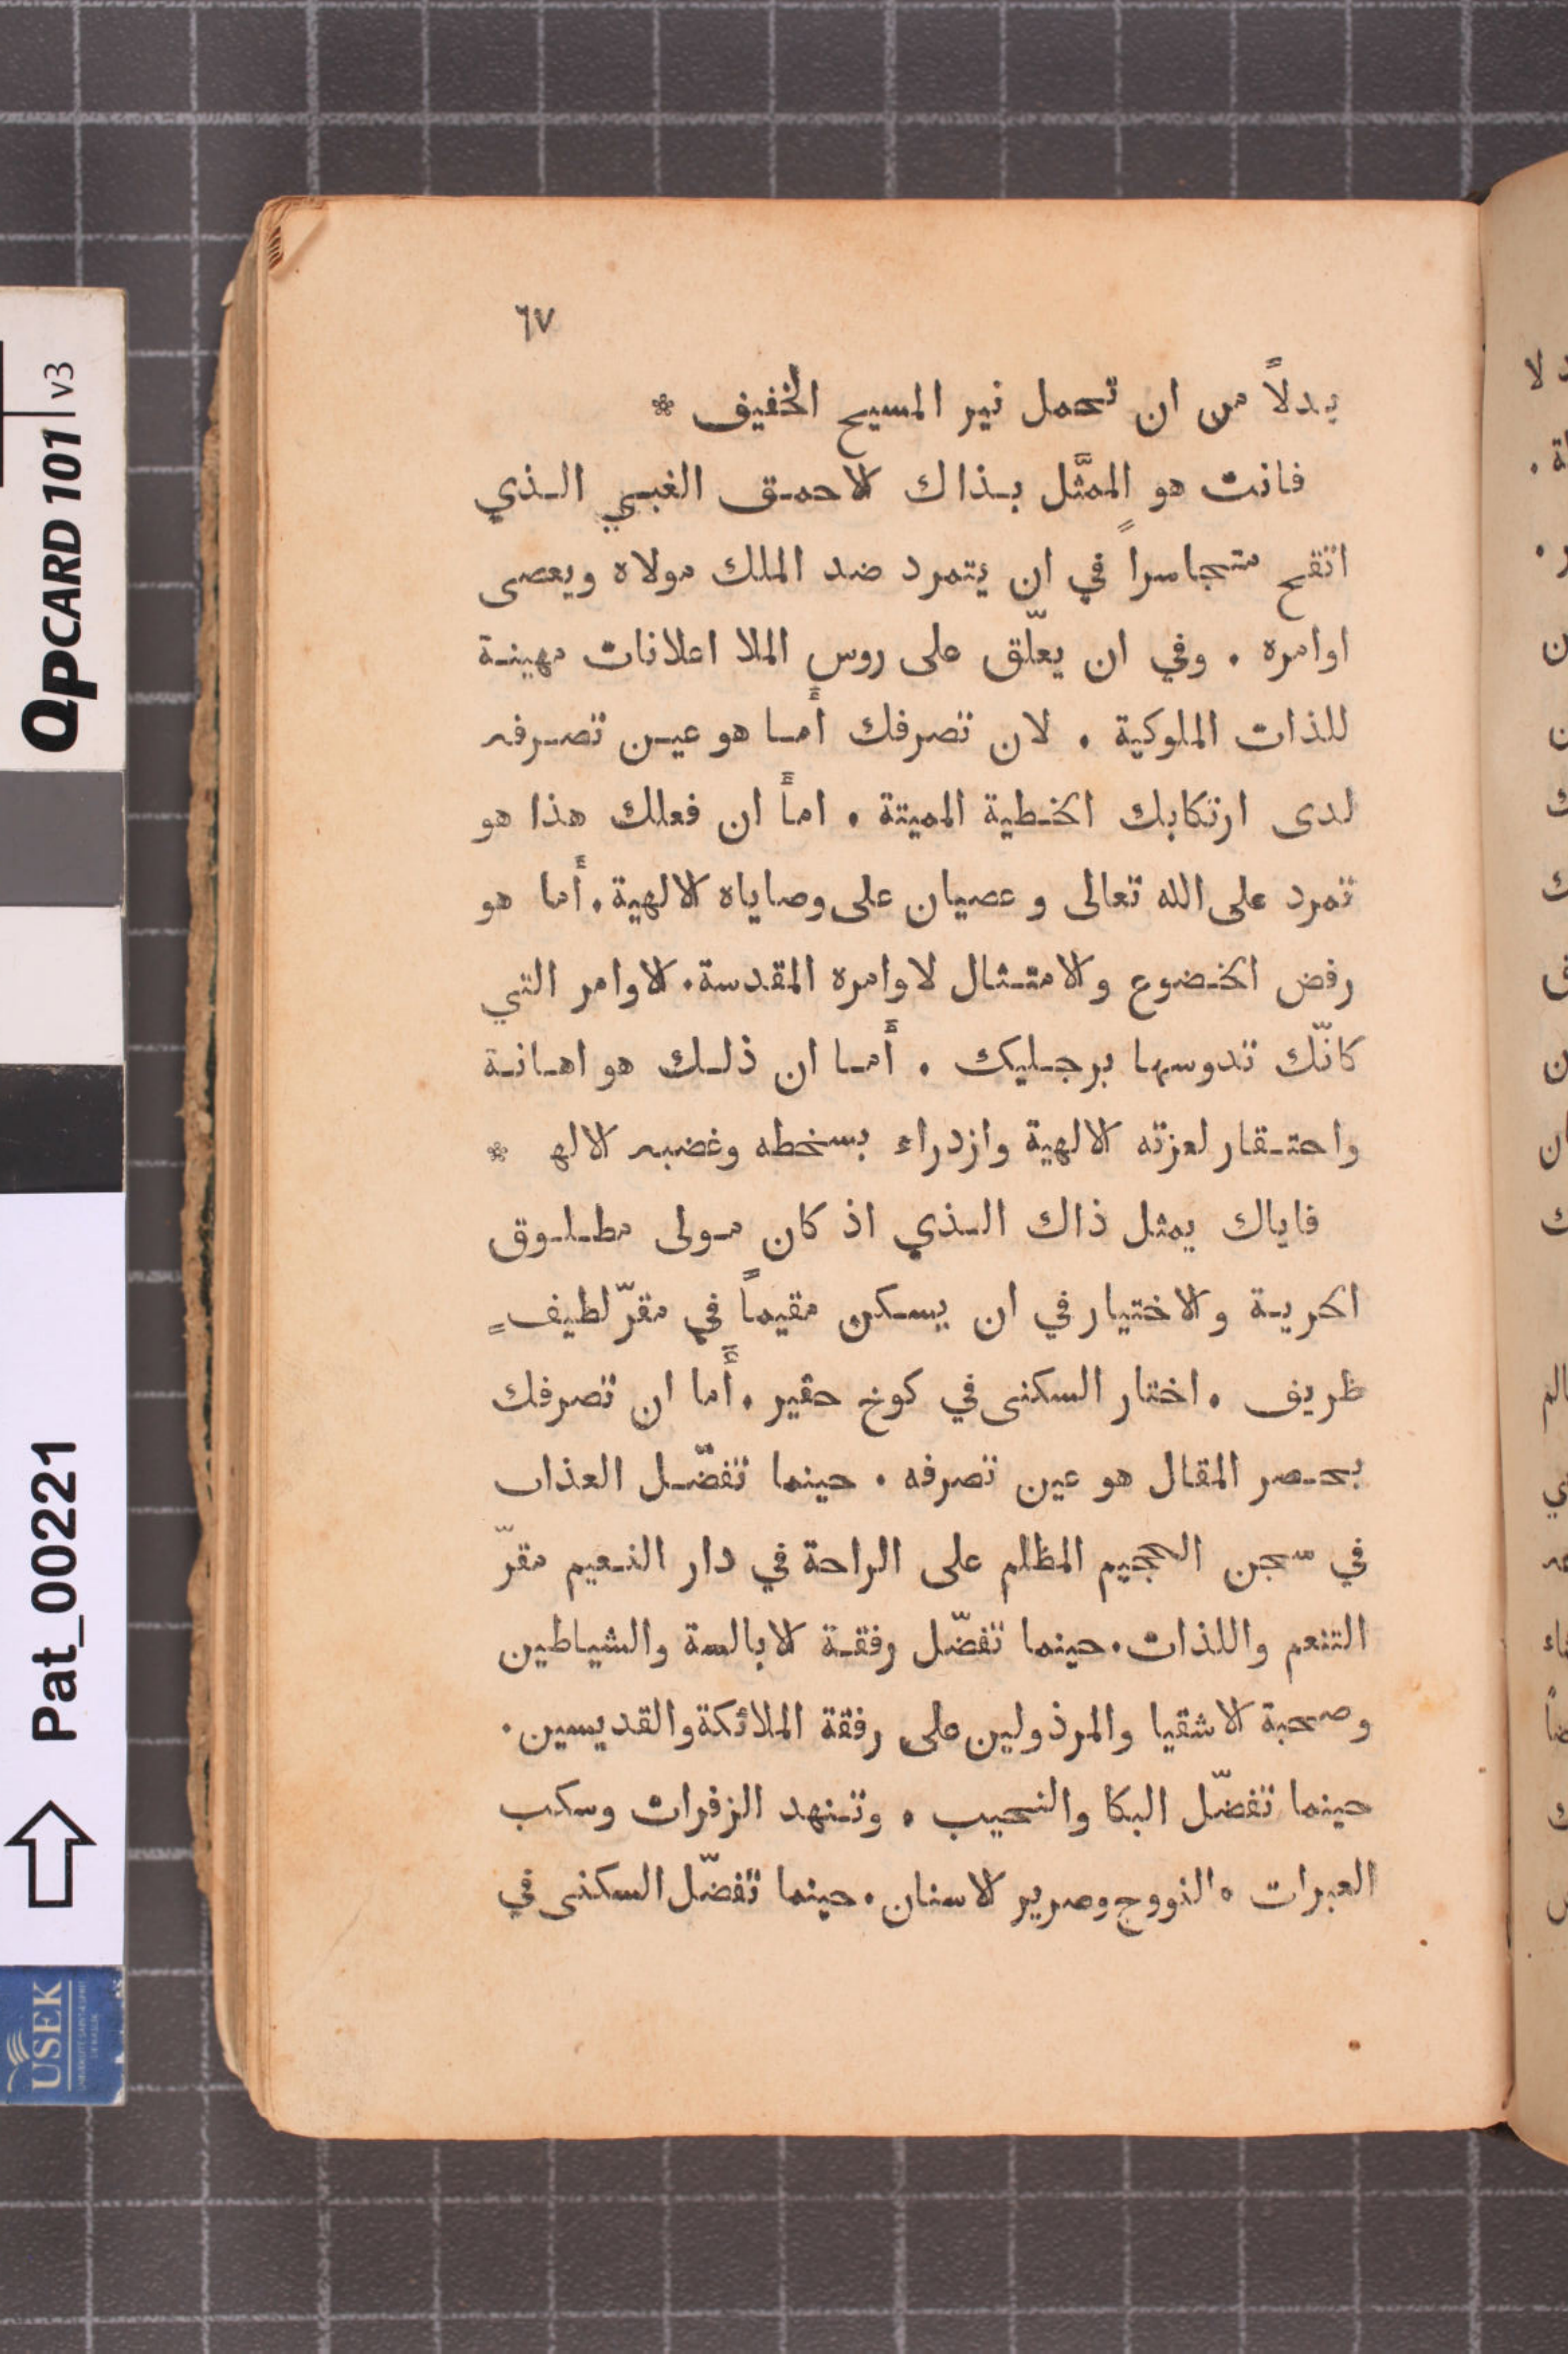 ٦٧
بدلاً من ان تحمل نير المسيح الخفيف *
فانت هو الممثَّل بذاك الاحمق الغبي الذي
اتقح متجاسراً في ان يتمرد ضد الملك مولاه ويعصى
اوامره . وفي ان يعلّق على روس الملا اعلانات مهينة
للذات الملوكية . لان تصرفك أما هو عين تصرفه
لدى ارتكابك الخطية المميتة . اما ان فعلك هذا هو
تمرد على الله تعالى وعصيان على وصاياه الالهية . أما هو
رفض الخضوع والامتثال لاوامره المقدسة . الاوامر التي
كانّك تدوسها برجليك . أما ان ذلك هو اهانة
واحتقار لعزته الالهية وازدراء بسخطه وغضبه الاله *
فاياك يمثل ذاك الذي اذ كان مولى مطلوق
الحرية والاختيار في ان يسكن مقيماً في مقرّ لطيفٍ
ظريف . اختار السكنى في كوخ حقير . أما ان تصرفك
بحصر المقال هو عين تصرفه . حينما تفضّل العذاب
في سجن الجحيم المظلم على الراحة في دار النعيم مقرّ
التنعم واللذات . حينما تفضّل رفقة الابالسة والشياطين
وصحبة الاشقيا والمرذولين على رفقة الملائكة والقديسين .
حينما تفضّل البكا والنحيب . وتنهد الزفرات وسكب
العبرات . النووح وصرير الاسنان . حينما تفضّل السكنى في
QPCARD 101 v3
Pat_00221
USEK